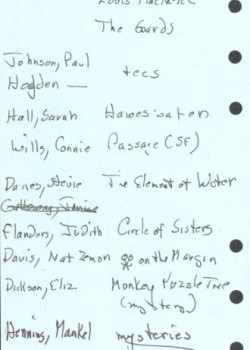 Louis MacNeice
The Gords
Johnson, Paul
Hogden — tecs
Hall, Sarah Haweswater
Wills, Connie Passage (SF)
Davies, Stevie The Element of Water
Galloway, Janice
Flanders, Judith Circle of Sisters
Davis, Nat Zemon on the Margin
Dickson, Eliz Monkey Puzzle Tree
(mystery)
Henning, Mankel mysteries